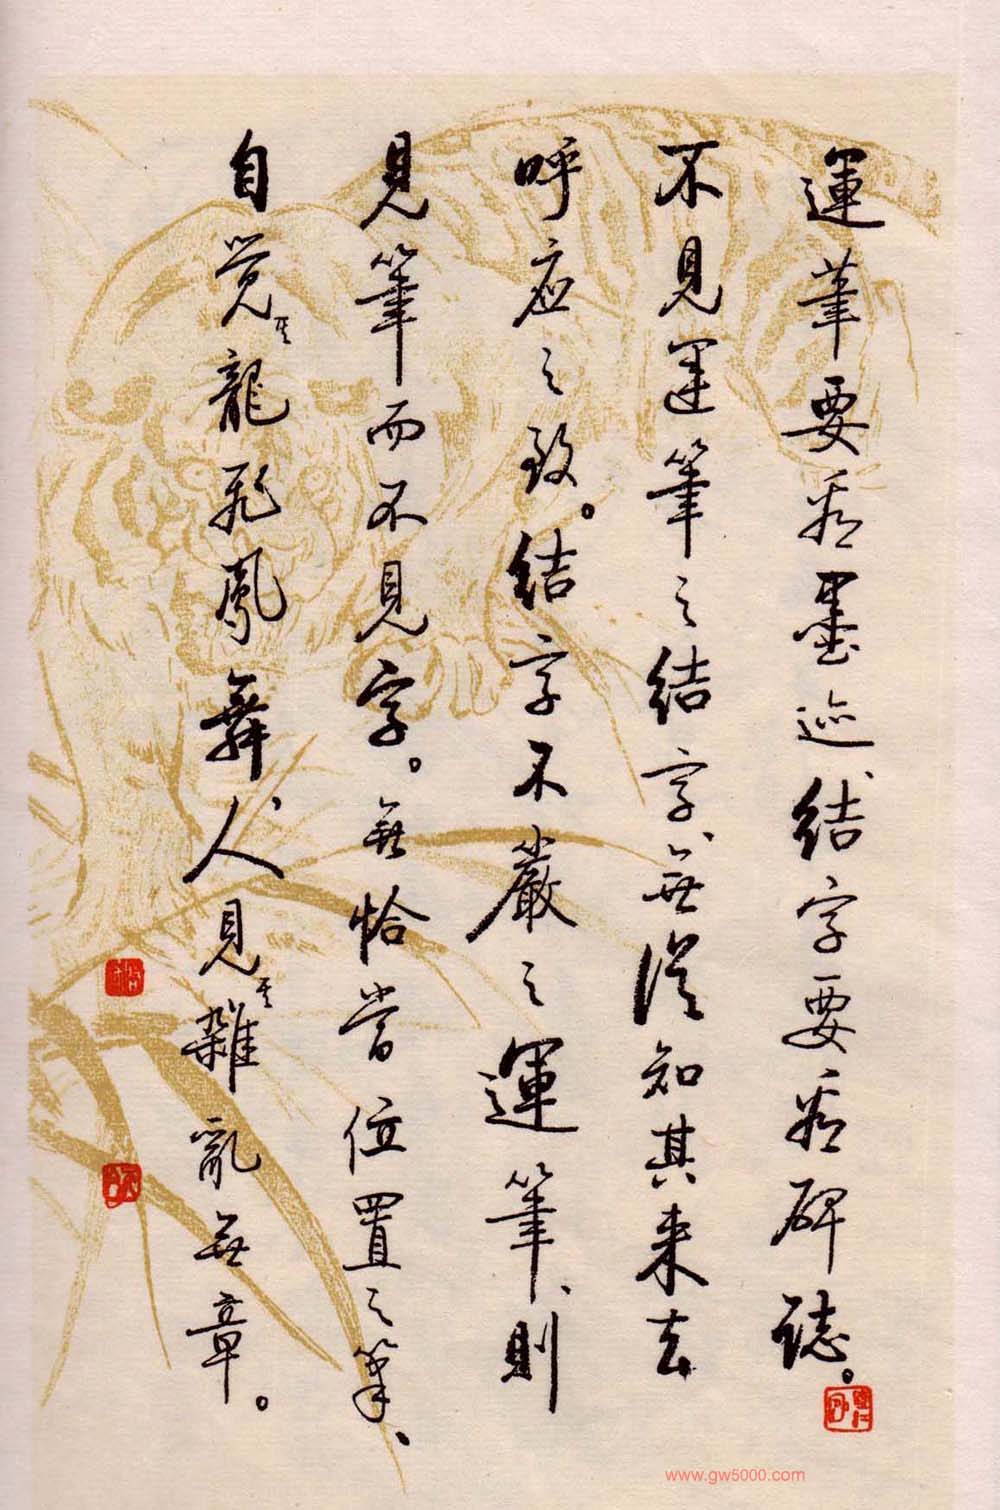 運筆要看墨迹、結字要看碑誌。
不見運筆之結字、無從知其来去
呼应之致。結字不嚴之運筆、則
見筆而不見字。無恰當位置之筆、
自觉其龍飛鳳舞、人見其雜亂無章。
www.gw5000.com